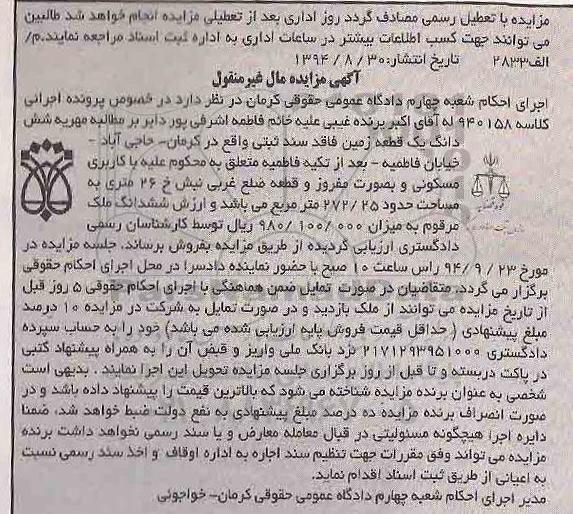 مزایده با تعطیل رسمی مصادف گردد روز اداری بعد از تعطیلی مزایده انجام خواهد شد طالبین
می توانند جهت کسب اطلاعات بیشتر در ساعات اداری به اداره ثبت اسناد مراجعه نمایند.م/
الف۲۸۳۳ تاریخ انتشار: ۳۰ / ۸ / ۱۳۹۴
آگهی مزایده مال غیرمنقول
اجرای احکام شعبه چهارم دادگاه عمومی حقوقی کرمان در نظر دارد در خصوص پرونده اجرائی
کلاسه ۹۴۰۱۵۸ له آقای اکبر برنده غیبی علیه خانم فاطمه اشرفی پور دایر بر مطالبه مهریه شش
دانگ یک قطعه زمین فاقد سند ثبتی واقع در کرمان- حاجی آباد -
خیابان فاطمیه - بعد از تکیه فاطمیه متعلق به محکوم علیه با کاربری
مسکونی و بصورت مفروز و قطعه ضلع غربی نبش خ ۲۶ متری به
مساحت حدود ۲۷۲/۲۵ متر مربع می باشد و ارزش ششدانگ ملک
مرقوم به میزان ۹۸۰/۱۰۰/۰۰۰ ریال توسط کارشناسان رسمی
دادگستری ارزیابی گردیده از طریق مزایده بفروش برساند. جلسه مزایده در
مورخ ۲۳ / ۹ / ۹۴ راس ساعت ۱۰ صبح با حضور نماینده دادسرا در محل اجرای احکام حقوقی
برگزار می گردد. متقاضیان در صورت تمایل ضمن هماهنگی با اجرای احکام حقوقی ۵ روز قبل
از تاریخ مزایده می توانند از ملک بازدید و در صورت تمایل به شرکت در مزایده ۱۰ درصد
مبلغ پیشنهادی ( حداقل قیمت فروش پایه ارزیابی شده می باشد) خود را به حساب سپرده
دادگستری ۲۱۷۱۲۹۳۹۵۱۰۰۰ نزد بانک ملی واریز و قبض آن را به همراه پیشنهاد کتبی
در پاکت دربسته و تا قبل از روز برگزاری جلسه مزایده تحویل این اجرا نمایند . بدیهی است
شخصی به عنوان برنده مزایده شناخته می شود که بالاترین قیمت را پیشنهاد داده باشد و در
صورت انصراف برنده مزایده ده درصد مبلغ پیشنهادی به نفع دولت ضبط خواهد شد، ضمنا
دایره اجرا هیچگونه مسئولیتی در قبال معامله معارض و یا سند رسمی نخواهد داشت برنده
مزایده می تواند وفق مقررات جهت تنظیم سند اجاره به اداره اوقاف و اخذ سند رسمی نسبت
به اعیانی از طریق ثبت اسناد اقدام نماید.
مدیر اجرای احکام شعبه چهارم دادگاه عمومی حقوقی کرمان- خواجوئی